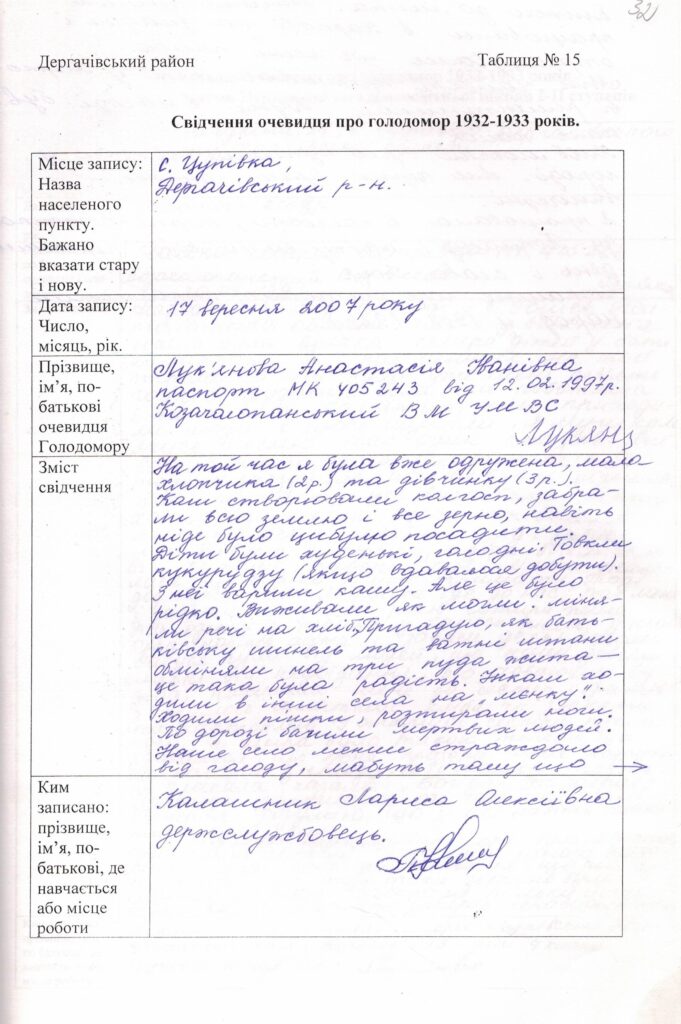 32
Дергачівський район Таблиця № 15
Свідчення очевидця про голодомор 1932-1933 років.
Місце запису:
Назва
населеного
пункту.
Бажано
вказати стару
і нову.
с. Цупівка,
Дергачівський р-н.
Дата запису:
Число,
місяць, рік.
17 вересня 2007 року
Прізвище,
ім’я, по-
батькові
очевидця
Голодомору
Лук'янова Анастасія Іванівна
паспорт МК 405243 від 12.02.1997р.
Козачалопанський ВМ УМВС
Лукян
Зміст
свідчення
На той час я була вже одружена, мала
хлопчика (2р.) та дівчинку (3р.).
Коли створювали колгосп, забра-
ли всю землю і все зерно, навіть
ніде було цибулю посадити.
Діти були худенькі, голодні. Товкли
кукурудзу (якщо вдавалося добути).
З неї варили кашу. Але це було
рідко. Виживали як могли: міня-
ли речі на хліб. Пригадую, як бать-
ківську шинель та ватні штани
обміняли на три пуда жита –
це така була радість. Інколи хо-
дили в інші села на „менку".
Ходили пішки, розтирали ноги.
По дорозі бачили мертвих людей.
Наше село менше страждало
від голоду, мабуть тому що →
Ким
записано:
прізвище,
ім’я, по-
батькові, де
навчається
або місце
роботи
Калашник Лариса Олексіївна
держслужбовець.